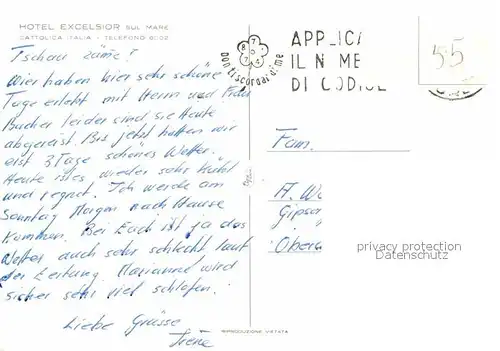 HOTEL EXCELSIOR SUL MARE
CATTOLICA ITALIA - TELEFONO 61002
Tschau zäme!
Wier haben hier sehr schöne
Tage erlebt mit Herrn und Frau
Bucher leider sind sie Heute
abgereist. Bis jetzt hatten wir
erst 3 Tage schönes Wetter.
Heute ist es wieder sehr kühl
und regnet. Ich werde am
Sonntag Morgen nach Hause
kommen. Bei Euch ist ja das
Wetter auch sehr schlecht laut
der Zeitung. Marianne wird
sicher sehr viel schlafen.
Liebe Grüsse
Irène
non ti scordar di me
APPLICA
IL NUME
DI CODICE
55
Fam.
A. W
Gipser
Obera
privacy protection
Datenschutz
RIPRODUZIONE VIETATA